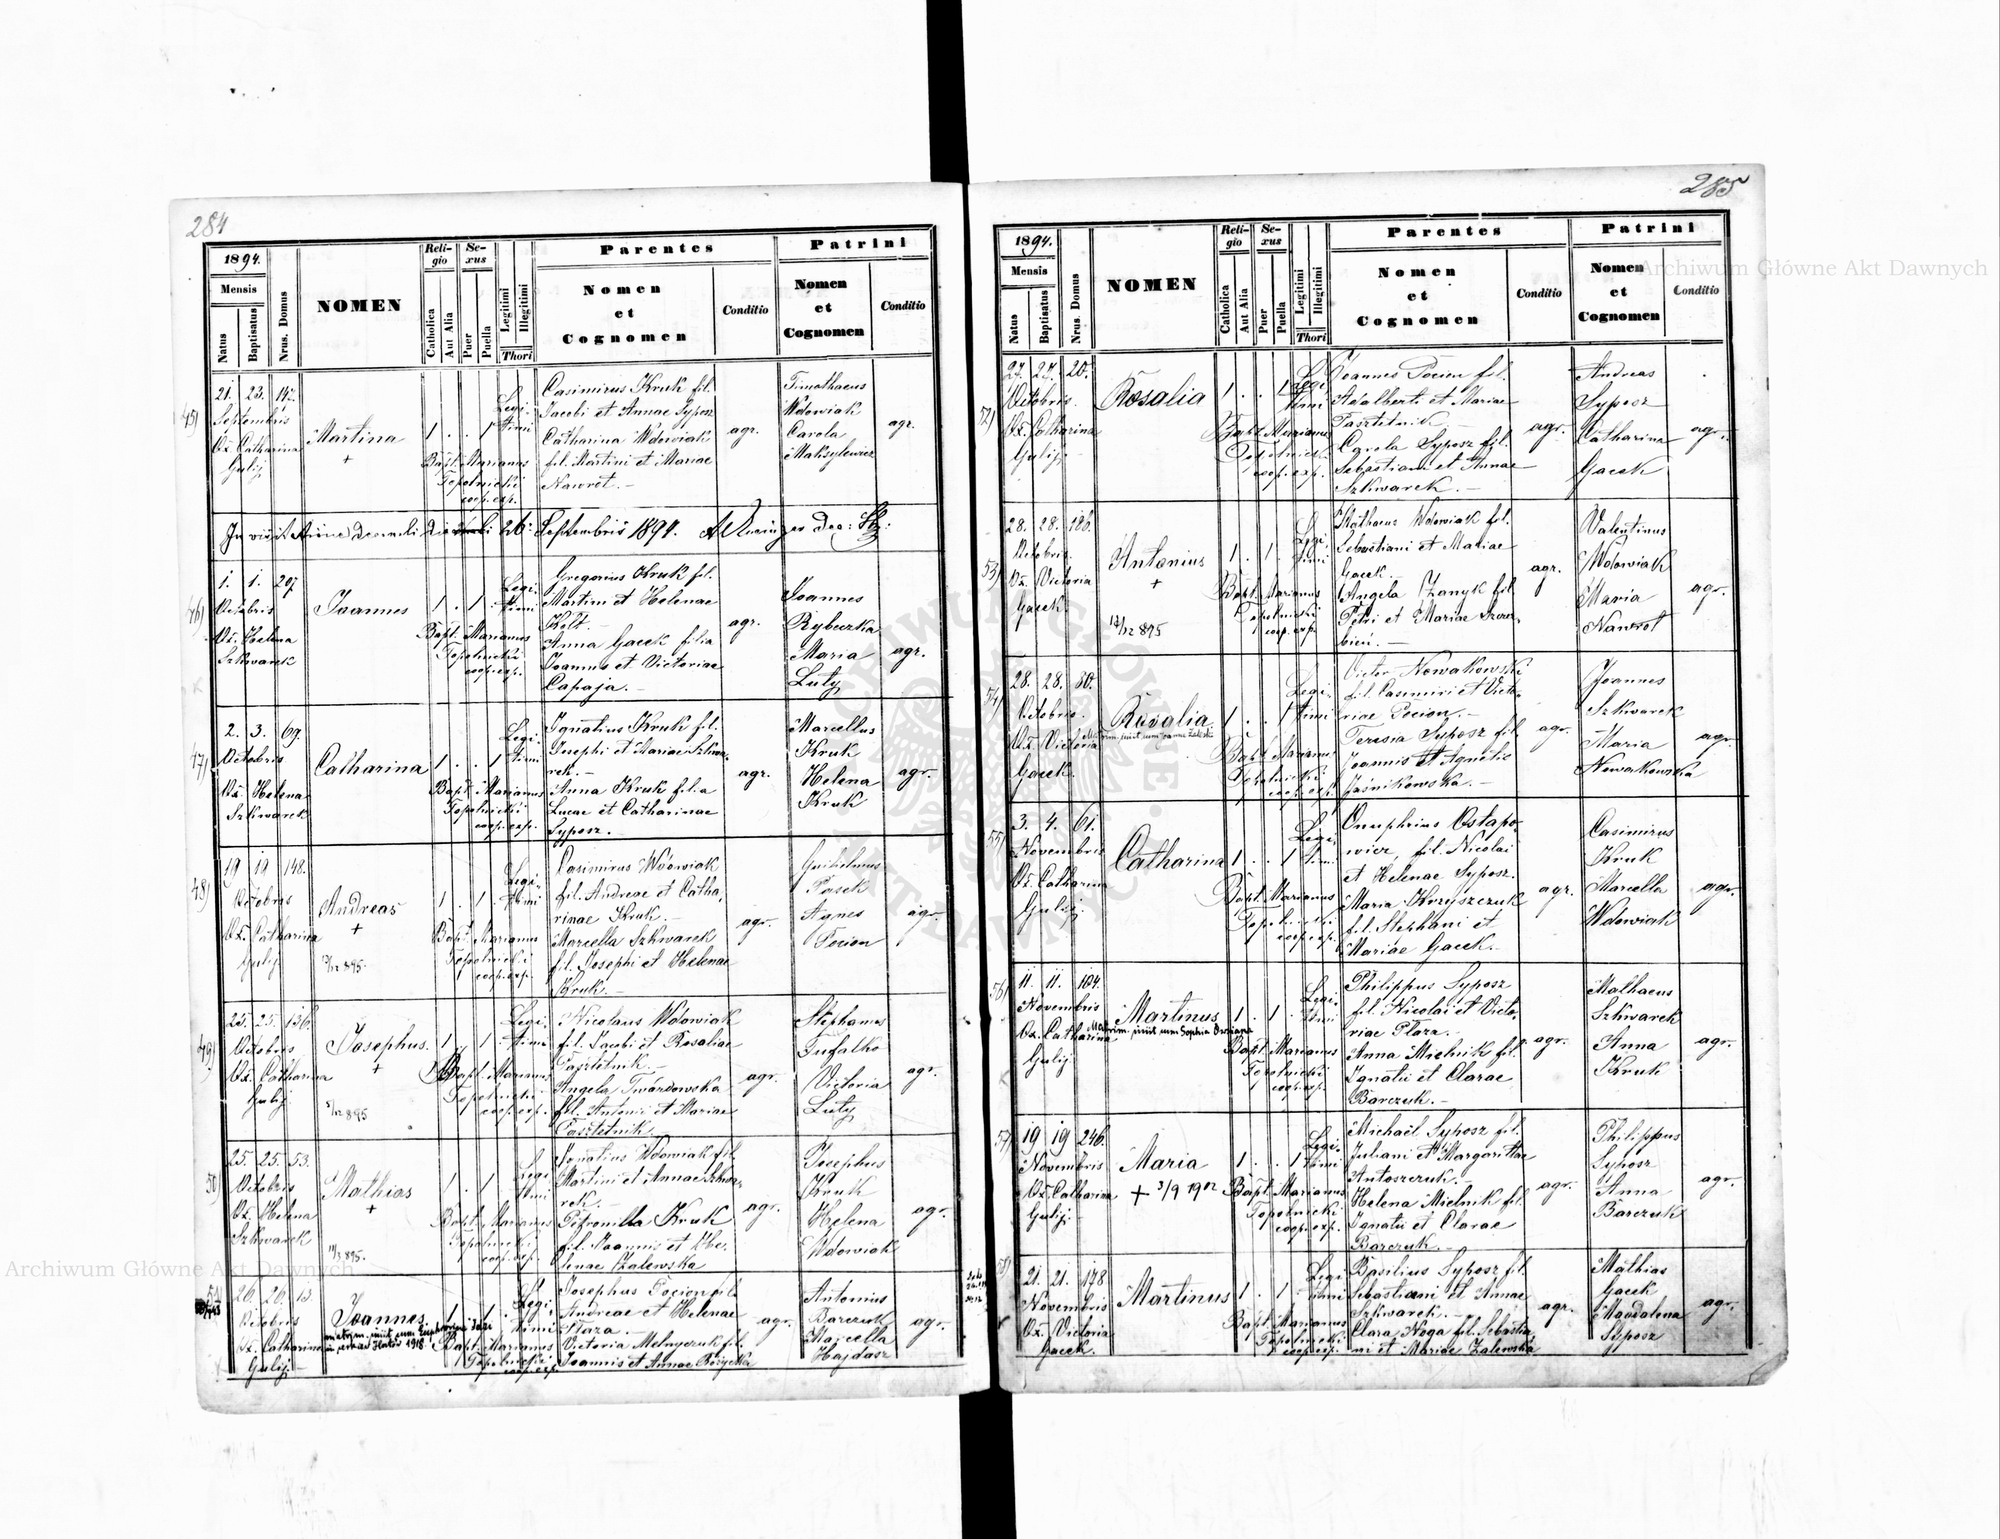 284
1894.
Mensis
Natus
Baptisatus
Nrus. Domus
NOMEN
Religio
Catholica
Aut Alia
Sexus
Puer
Puella
Legitimi
Illegitimi
Thori
Parentes
Nomen
et
Cognomen
Conditio
Patrini
Nomen
et
Cognomen
Conditio
45)
21. 23. 142.
Septembris
Ox. Catharina
Gulij
Martina
+
1 . . 1
Legi-
timi
Bapt. Marianus
Topolnicki
coop. exp.
Casimirus Kruk fil.
Jacobi et Annae Syposz
Catharina Wdowiak
fil. Martini et Mariae
Nawrot. —
agr.
Timothaeus
Wdowiak
Carola
Maksylewicz
agr.
26 Septembris 1894.
46)
1. 1. 207
Octobris
Ox. Helena
Szkwarek
Joannes
1 . 1 .
Legi-
timi
Bapt. Marianus
Topolnicki
coop. exp.
Gregorius Kruk fil.
Martini et Helenae
Kolt. —
Anna Gacek filia
Joannis et Victoriae
Capaja. —
agr.
Joannes
Rybeczka
Maria
Luty
agr.
47)
2. 3. 69.
Octobris
Ox. Helena
Szkwarek
Catharina
1 . . 1
Legi-
timi
Bapt. Marianus
Topolnicki
coop. exp.
Ignatius Kruk fil.
Josephi et Mariae Szkwa-
rek. —
Anna Kruk filia
Lucae et Catharinae
Syposz.
agr.
Marcellus
Kruk
Helena
Kruk
agr.
48)
19 19 148.
Octobris
Ox. Catharina
Gulij
Andreas
+
13/12 895.
1 . 1 .
Legi-
timi
Bapt. Marianus
Topolnicki
coop. exp.
Casimirus Wdowiak
fil. Andreae et Catha-
rinae Kruk. —
Marcella Szkwarek
fil. Josephi et Helenae
Kruk. —
agr.
Guihelmus
Pasek
Agnes
Pocion
agr.
49)
25. 25. 136.
Octobris
Ox. Catharina
Gulij
Josephus.
+
5/12 895
1 . 1 .
Legi-
timi
Bapt. Marianus
Topolnicki
coop. exp.
Nicolaus Wdowiak
fil. Jacobi et Rosaliae
Pasztetnik. —
Angela Twardowska
fil. Antonii et Mariae
Pasztetnik. —
agr.
Stephanus
Tufalko
Victoria
Luty
agr.
50)
25. 25. 53.
Octobris
Ox. Helena
Szkwarek
Mathias
+
11/3 895.
1 . 1 .
Legi-
timi
Bapt. Marianus
Topolnicki
coop. exp.
Ignatius Wdowiak fil.
Martini et Annae Szkwa-
rek. —
Petronilla Kruk
fil. Joannis et He-
lenae Zalewska
agr.
Josephus
Kruk
Helena
Wdowiak
agr.
51)
26. 26. 13
Octobris
Ox. Catharina
Gulij
Joannes.
1918
1 . 1 .
Legi-
timi
Bapt. Marianus
Topolnicki
coop. exp.
Josephus Pocion fil.
Andreae et Helenae
Plaza. —
Victoria Melnyczuk fil.
Joannis et Annae Bożycka
agr.
Antonius
Barczuk
Marcella
Hajdasz
agr.
285
1894.
Mensis
Natus
Baptisatus
Nrus. Domus
NOMEN
Religio
Catholica
Aut Alia
Sexus
Puer
Puella
Legitimi
Illegitimi
Thori
Parentes
Nomen
et
Cognomen
Conditio
Patrini
Nomen
et
Cognomen
Conditio
52)
27. 27. 20.
Octobris.
Ox. Catharina
Gulij. —
Rosalia
1 . . 1
Legi-
timi
Bapt. Marianus
Topolnicki
coop. exp.
Joannes Pocion fil.
Adalberti et Mariae
Pasztetnik. —
Carola Syposz fil.
Sebastiani et Annae
Szkwarek. —
agr.
Andreas
Syposz
Catharina
Gacek
agr.
53)
28. 28. 186.
Octobris.
Ox. Victoria
Gacek.
Antonius
+
12/12 895
1 . 1 .
Legi-
timi
Bapt. Marianus
Topolnicki
coop. exp.
Mathaeus Wdowiak fil.
Sebastiani et Mariae
Gacek. —
Angela Zanyk fil.
Petri et Mariae Szcze-
bień. —
agr.
Valentinus
Wdowiak
Maria
Nawrot
agr.
54)
28. 28. 80.
Octobris.
Ox. Victoria
Gacek
Rosalia.
1 . . 1
Legi-
timi
Bapt. Marianus
Topolnicki
coop. exp.
Victor Nowakowski
fil. Casimiri et Victo-
riae Pocion. —
Teresia Syposz fil.
Joannis et Agnetis
Jaśnikowska. —
agr.
Joannes
Szkwarek
Maria
Nowakowska
agr.
55)
3. 4. 61.
Novembris
Ox. Catharina
Gulij.
Catharina
1 . . 1
Legi-
timi
Bapt. Marianus
Topolnicki
coop. exp.
Onuphrius Ostapo-
wicz, fil. Nicolai
et Helenae Syposz.
Maria Krzyszczuk
fil. Stephani et
Mariae Gacek. —
agr.
Casimirus
Kruk
Marcella
Wdowiak
agr.
56)
11. 11. 104.
Novembris
Ox. Catharina
Gulij.
Martinus
Matrim. iniit cum Sophia
1 . 1 .
Legi-
timi
Bapt. Marianus
Topolnicki
coop. exp.
Philippus Syposz
fil. Nicolai et Victo-
riae Plaza. —
Anna Mielnik fil.
Ignatii et Clarae
Barczuk. —
agr.
Mathaeus
Szkwarek
Anna
Kruk
agr.
57)
19 19 246.
Novembris
Ox. Catharina
Gulij. —
Maria
+ 3/9 1902
1 . . 1
Legi-
timi
Bapt. Marianus
Topolnicki
coop. exp.
Michaël Syposz fil.
Juliani et Margarittae
Antoszczuk. —
Helena Mielnik fil.
Ignatii et Clarae
Barczuk. —
agr.
Philippus
Syposz
Anna
Barczuk
agr.
58)
21. 21. 178
Novembris
Ox. Victoria
Gacek.
Martinus
1 . 1 .
Legi-
timi
Bapt. Marianus
Topolnicki
coop. exp.
Basilius Syposz fil.
Sebastiani et Annae
Szkwarek. —
Clara Noga fil. Sebastia-
ni et Mariae Zalewska
agr.
Mathias
Gacek
Magdalena
Syposz
agr.
Archiwum Główne Akt Dawnych
Archiwum Główne Akt Dawnych
ARCHIWUM GŁÓWNE AKT DAWNYCH